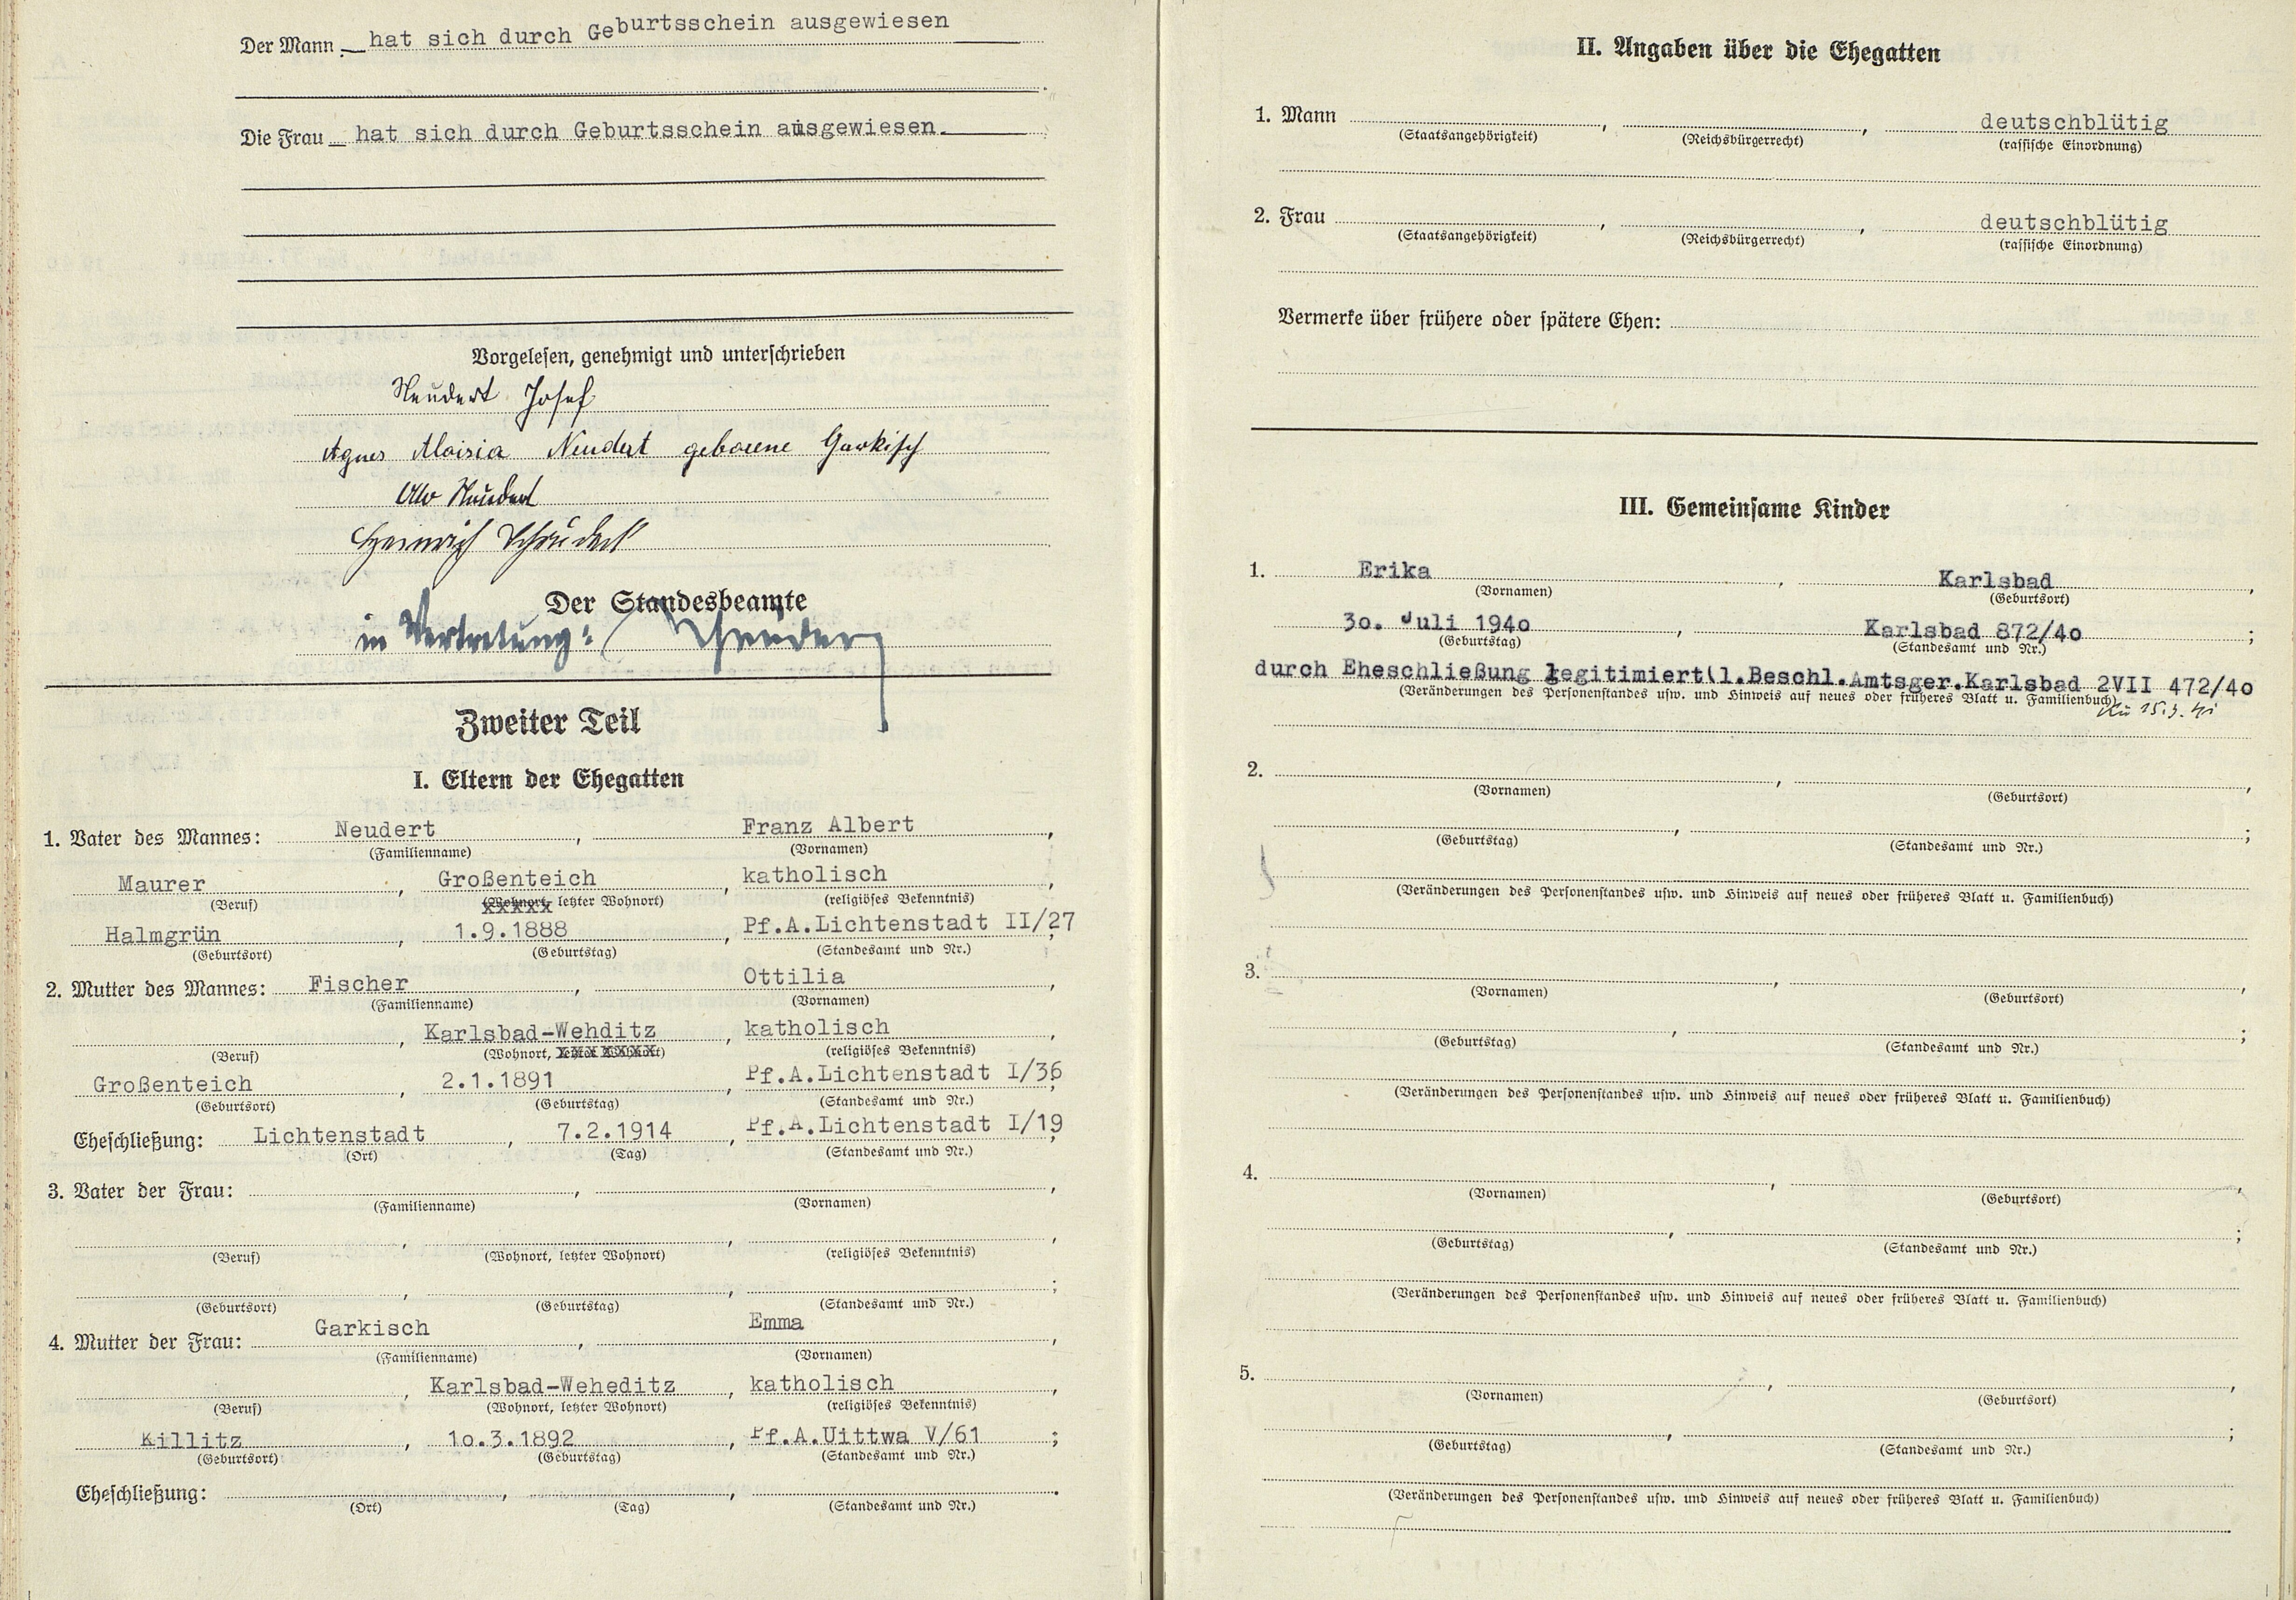 Der Mann hat sich durch Geburtsschein ausgewiesen
Die Frau hat sich durch Geburtsschein ausgewiesen.
Vorgelesen, genehmigt und unterschrieben
Neudert Josef
Agnes Aloisia Neudert geborene Garkisch
Neudert
Heinrich
Der Standesbeamte
in Vertretung:
Zweiter Teil
I. Eltern der Ehegatten
1. Vater des Mannes: Neudert, Franz Albert,
(Familienname) (Vornamen)
Maurer, Großenteich, katholisch,
(Beruf) (Wohnort, letzter Wohnort) (religiöses Bekenntnis)
Halmgrün, 1.9.1888, Pf.A.Lichtenstadt II/27;
(Geburtsort) (Geburtstag) (Standesamt und Nr.)
2. Mutter des Mannes: Fischer, Ottilia,
(Familienname) (Vornamen)
, Karlsbad-Wehditz, katholisch,
(Beruf) (Wohnort, letzter Wohnort) (religiöses Bekenntnis)
Großenteich, 2.1.1891, Pf.A.Lichtenstadt I/36;
(Geburtsort) (Geburtstag) (Standesamt und Nr.)
Eheschließung: Lichtenstadt, 7.2.1914, Pf.A.Lichtenstadt I/19;
(Ort) (Tag) (Standesamt und Nr.)
3. Vater der Frau: , ,
(Familienname) (Vornamen)
, , ,
(Beruf) (Wohnort, letzter Wohnort) (religiöses Bekenntnis)
, , ;
(Geburtsort) (Geburtstag) (Standesamt und Nr.)
4. Mutter der Frau: Garkisch, Emma,
(Familienname) (Vornamen)
, Karlsbad-Weheditz, katholisch,
(Beruf) (Wohnort, letzter Wohnort) (religiöses Bekenntnis)
Killitz, 1o.3.1892, Pf.A.Uittwa V/61;
(Geburtsort) (Geburtstag) (Standesamt und Nr.)
Eheschließung: , , .
(Ort) (Tag) (Standesamt und Nr.)
II. Angaben über die Ehegatten
1. Mann , , deutschblütig
(Staatsangehörigkeit) (Reichsbürgerrecht) (rassische Einordnung)
2. Frau , , deutschblütig
(Staatsangehörigkeit) (Reichsbürgerrecht) (rassische Einordnung)
Vermerke über frühere oder spätere Ehen:
III. Gemeinsame Kinder
1. Erika, Karlsbad,
(Vornamen) (Geburtsort)
3o. Juli 194o, Karlsbad 872/4o;
(Geburtstag) (Standesamt und Nr.)
durch Eheschließung legitimiert(l.Beschl.Amtsger.Karlsbad 2VII 472/4o
(Veränderungen des Personenstandes usw. und Hinweis auf neues oder früheres Blatt u. Familienbuch)
15.3.41
2. , ,
(Vornamen) (Geburtsort)
, ;
(Geburtstag) (Standesamt und Nr.)
(Veränderungen des Personenstandes usw. und Hinweis auf neues oder früheres Blatt u. Familienbuch)
3. , ,
(Vornamen) (Geburtsort)
, ;
(Geburtstag) (Standesamt und Nr.)
(Veränderungen des Personenstandes usw. und Hinweis auf neues oder früheres Blatt u. Familienbuch)
4. , ,
(Vornamen) (Geburtsort)
, ;
(Geburtstag) (Standesamt und Nr.)
(Veränderungen des Personenstandes usw. und Hinweis auf neues oder früheres Blatt u. Familienbuch)
5. , ,
(Vornamen) (Geburtsort)
, ;
(Geburtstag) (Standesamt und Nr.)
(Veränderungen des Personenstandes usw. und Hinweis auf neues oder früheres Blatt u. Familienbuch)